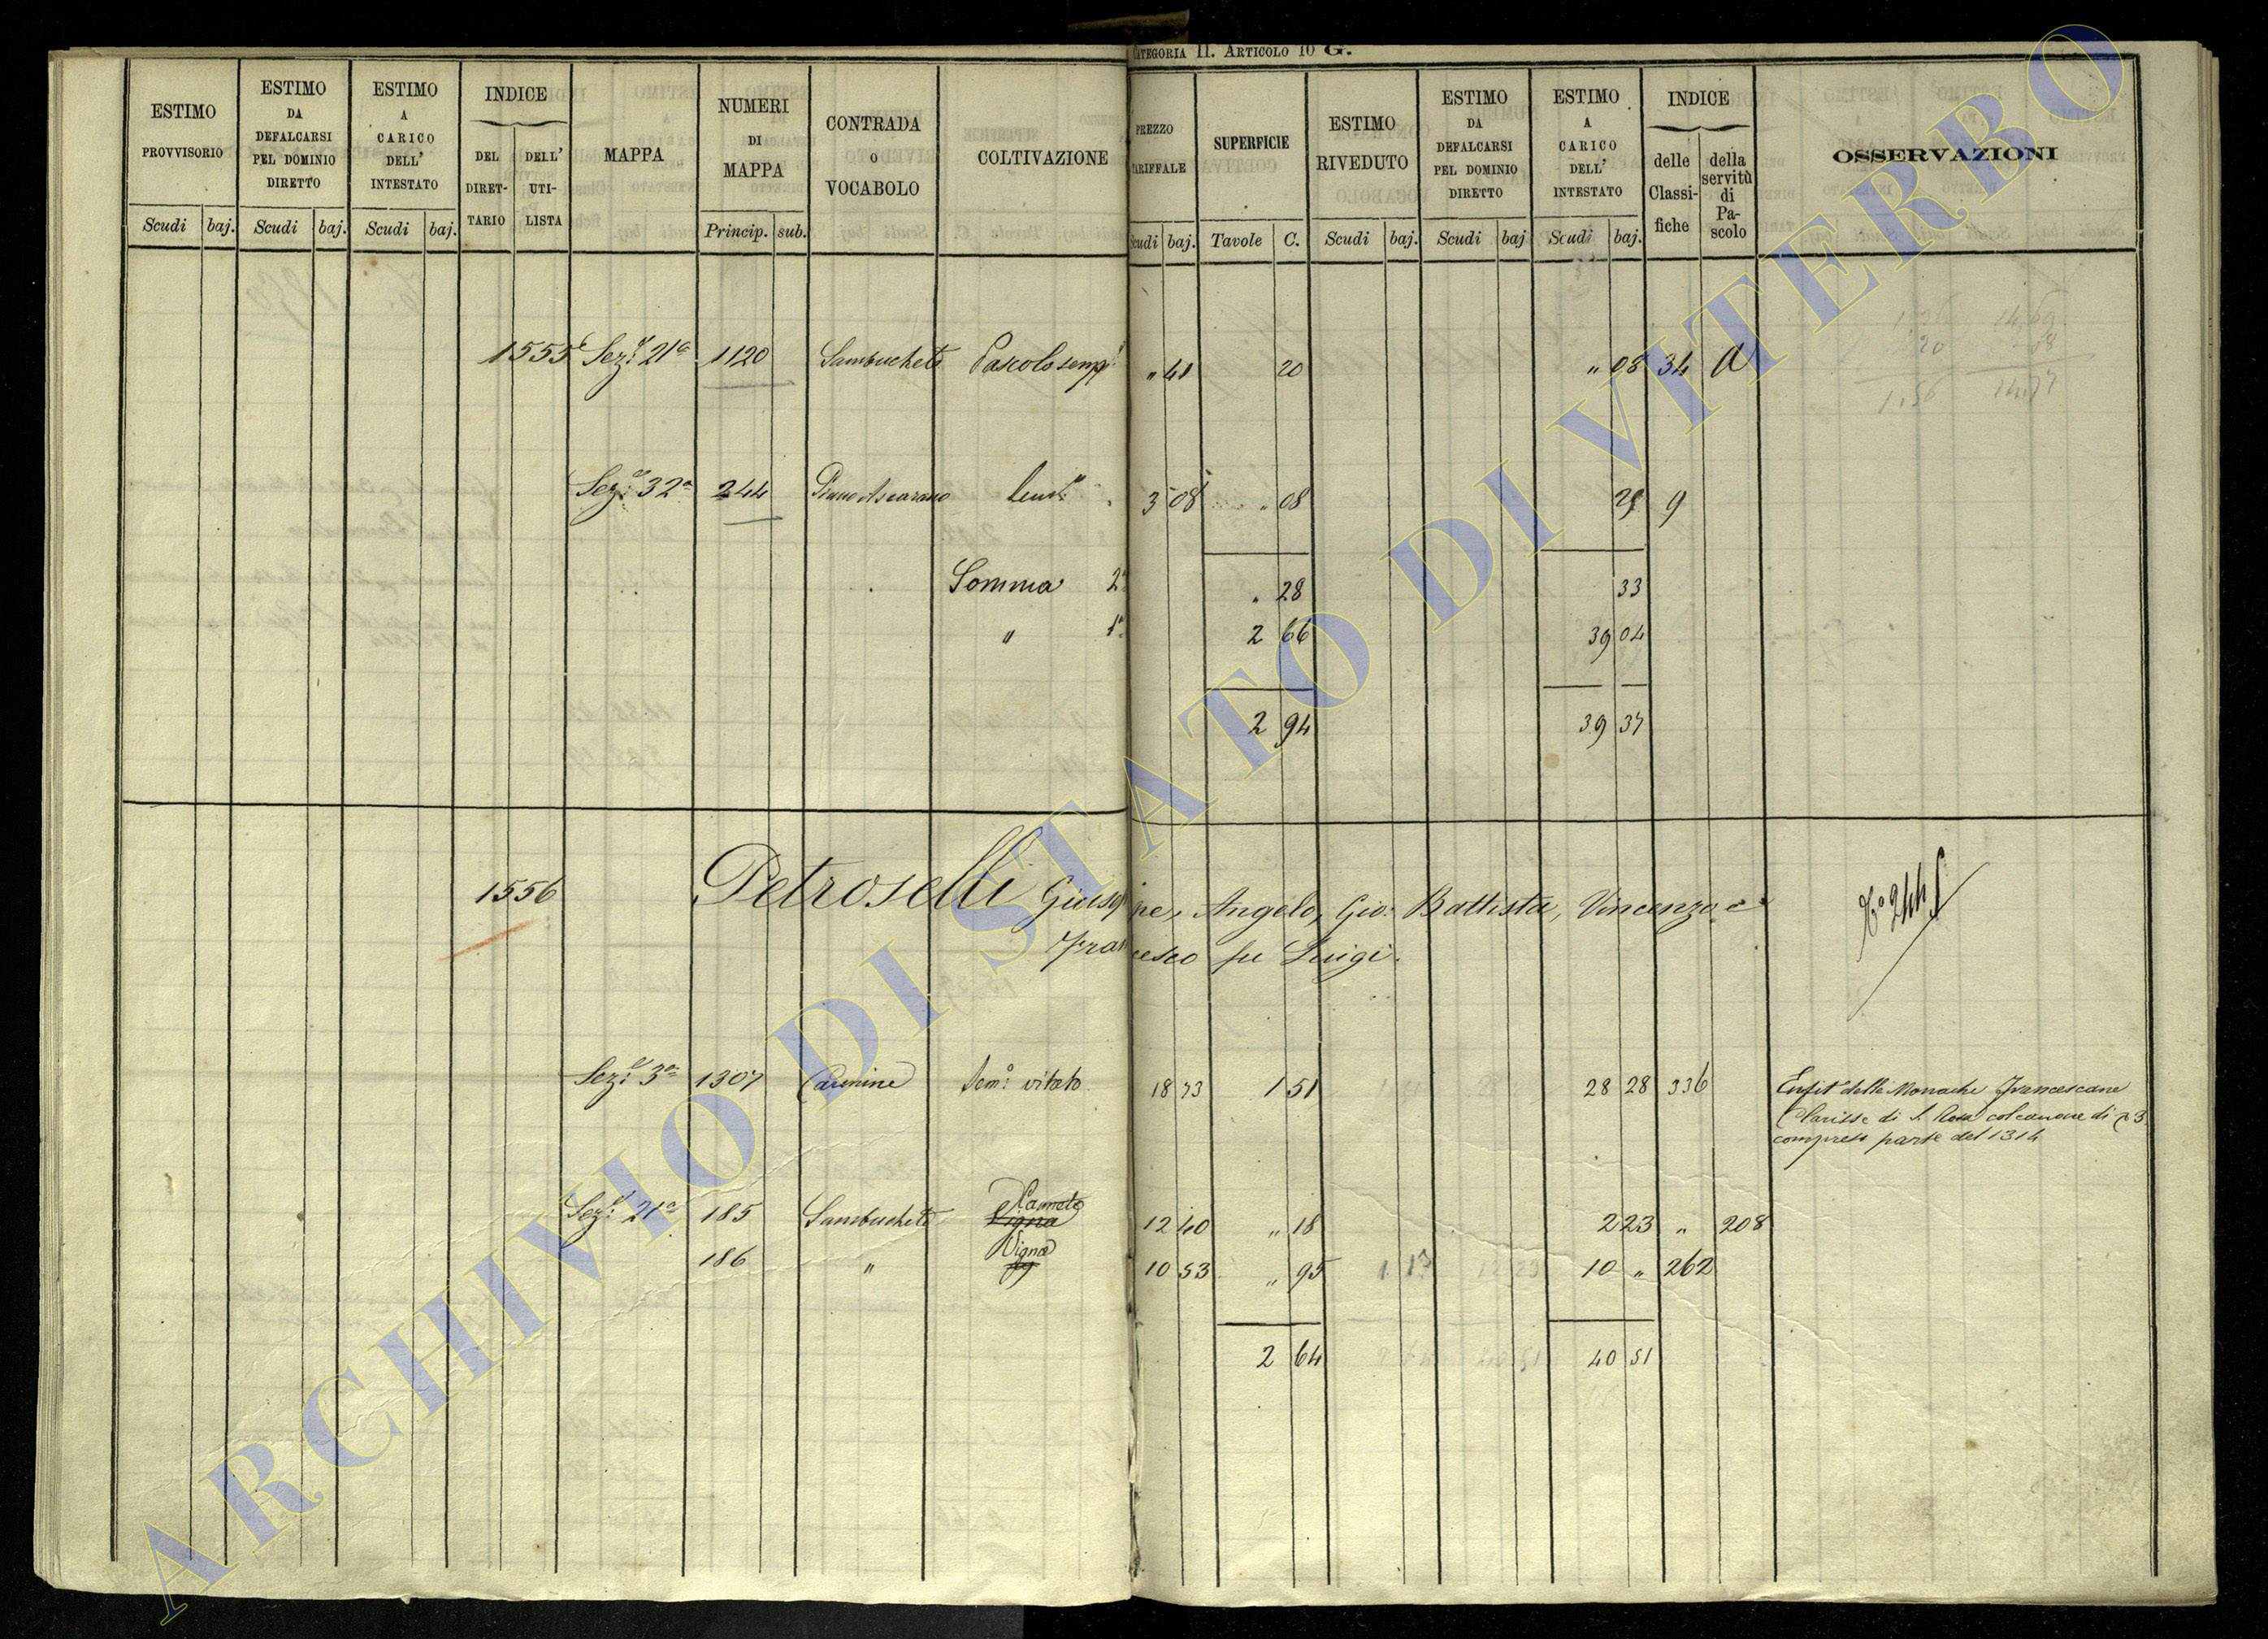 CATEGORIA II. ARTICOLO 10 G.
ESTIMO PROVVISORIO
ESTIMO DA DEFALCARSI PEL DOMINIO DIRETTO
ESTIMO A CARICO DELL' INTESTATO
INDICE
DEL DIRET-TARIO
DELL' UTI-LISTA
MAPPA
NUMERI DI MAPPA
CONTRADA O VOCABOLO
COLTIVAZIONE
PREZZO TARIFFALE
SUPERFICIE
ESTIMO RIVEDUTO
ESTIMO DA DEFALCARSI PEL DOMINIO DIRETTO
ESTIMO A CARICO DELL' INTESTATO
INDICE
delle Classi-fiche
della servitù di Pa-scolo
OSSERVAZIONI
Scudi baj. Scudi baj. Scudi baj. Princip. sub. Scudi baj. Tavole C. Scudi baj. Scudi baj Scudi baj.
1,36 14,69
20 08
1,56 14,77
1555 Sez.e 21a 1120 Sambucheto Pascolo semp.e " 41 20 " 08 34 a
Sez.e 32a 244 Piano Ascarano 3 08 " 08 9
Somma 2a " 28 33
" 1a 2 66 39 04
2 94 39 37
1556 Petroselli Giuseppe, Angelo, Gio: Battista, Vincenzo e
Francesco fu Luigi.
Sez.e 3a 1307 Carmine Sem.o vitato 18 73 1 51 28 28 336
Enfit.i delle Monache Francescane
Clarisse di S. Rosa col canone di 3
compreso parte del 1314
Sez.e 21a 185 Sambucheto Vigna Canneto 12 40 " 18 2 23 " 208
186 " Vigna 10 53 " 95 10 " 262
2 64 40 51
ARCHIVIO DI STATO DI VITERBO